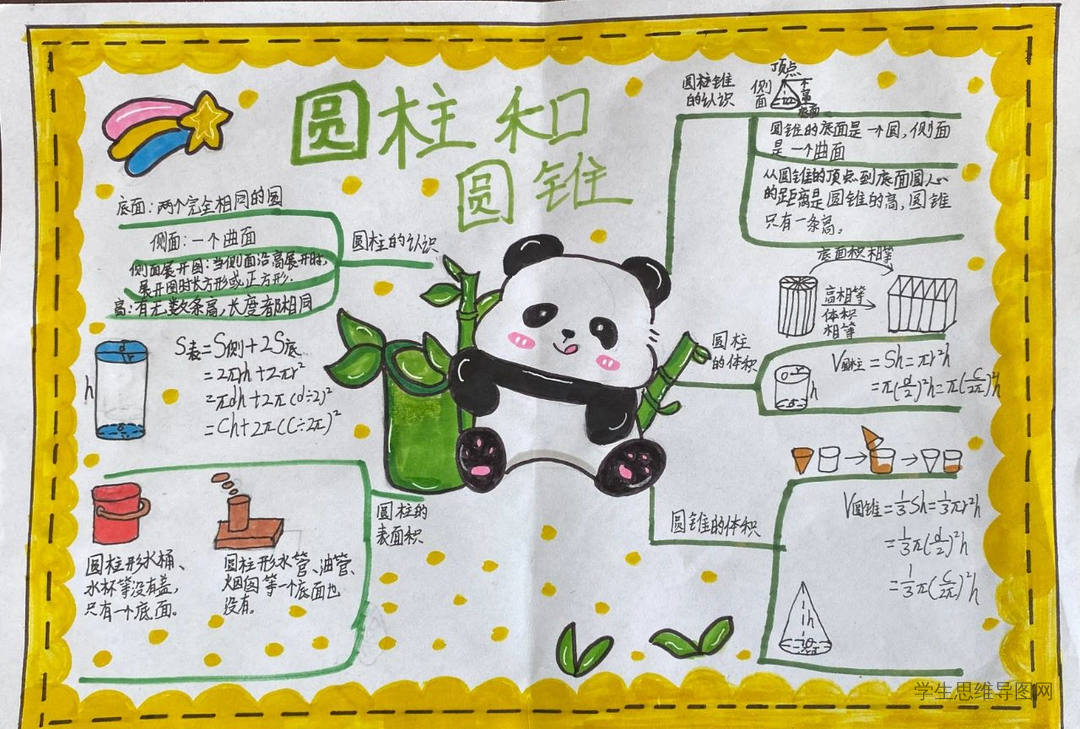 圆柱和
圆锥
底面：两个完全相同的圆
侧面：一个曲面
侧面展开图：当侧面沿高展开时，
展开图时长方形或正方形.
高：有无数条高，长度都相同
圆柱的认识
S表=S侧+2S底
=2πrh+2πr²
=πdh+2π(d÷2)²
=Ch+2π(C÷2π)²
h
r
圆柱的
表面积
圆柱形水桶、
水杯等没有盖，
只有一个底面。
圆柱形水管、油管、
烟囱等一个底面也
没有。
圆柱锥
的认识
顶点
侧
面
圆锥的底面是一个圆，侧面
是一个曲面
从圆锥的顶点到底面圆心
的距离是圆锥的高，圆锥
只有一条高。
底面积相等
高相等
体积
相等
圆柱
的体积
h
V圆柱=Sh=πr²h
=π(d/2)²h=π(C/2π)²h
圆锥的体积
V圆锥=1/3Sh=1/3πr²h
=1/3π(d/2)²h
=1/3π(C/2π)²h
h
学生思维导图网